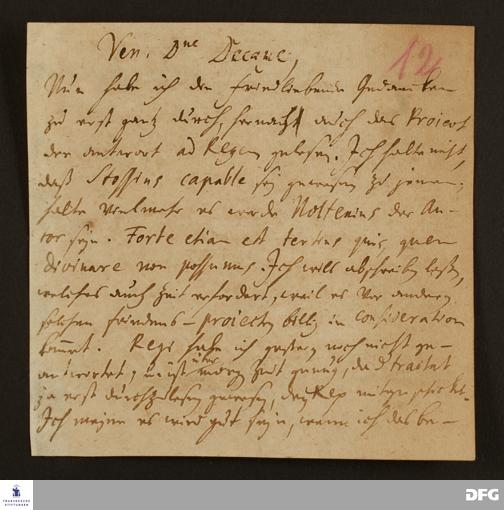 Ven. Dne Decane, 12
Nun habe ich den friedliebenden Gedancken
zu erst gantz durch, hernach auch das Project
der antwort ad Regem gelesen. Ich halte nicht,
daß Stossius capable sey gewesen zu jenem,
halte vielmehr es werde Noltenius der Au-
tor seyn. Forte etiam est tertius quis, quem
divinare non possumus. Ich will abschreiben laßen,
welches auch Zeit erfordert, weil es vor andern
solchen friedens-projecten billig in consideration
kommet. Regi habe ich gestern noch nicht ge-
antwortet, über morgen Zeit genug, da tractat
zu erst durchzulesen gewesen, den Rex
Ich meyne es wird gut seyn, wenn ich das be-
FRANCKESCHE STIFTUNGEN
DFG